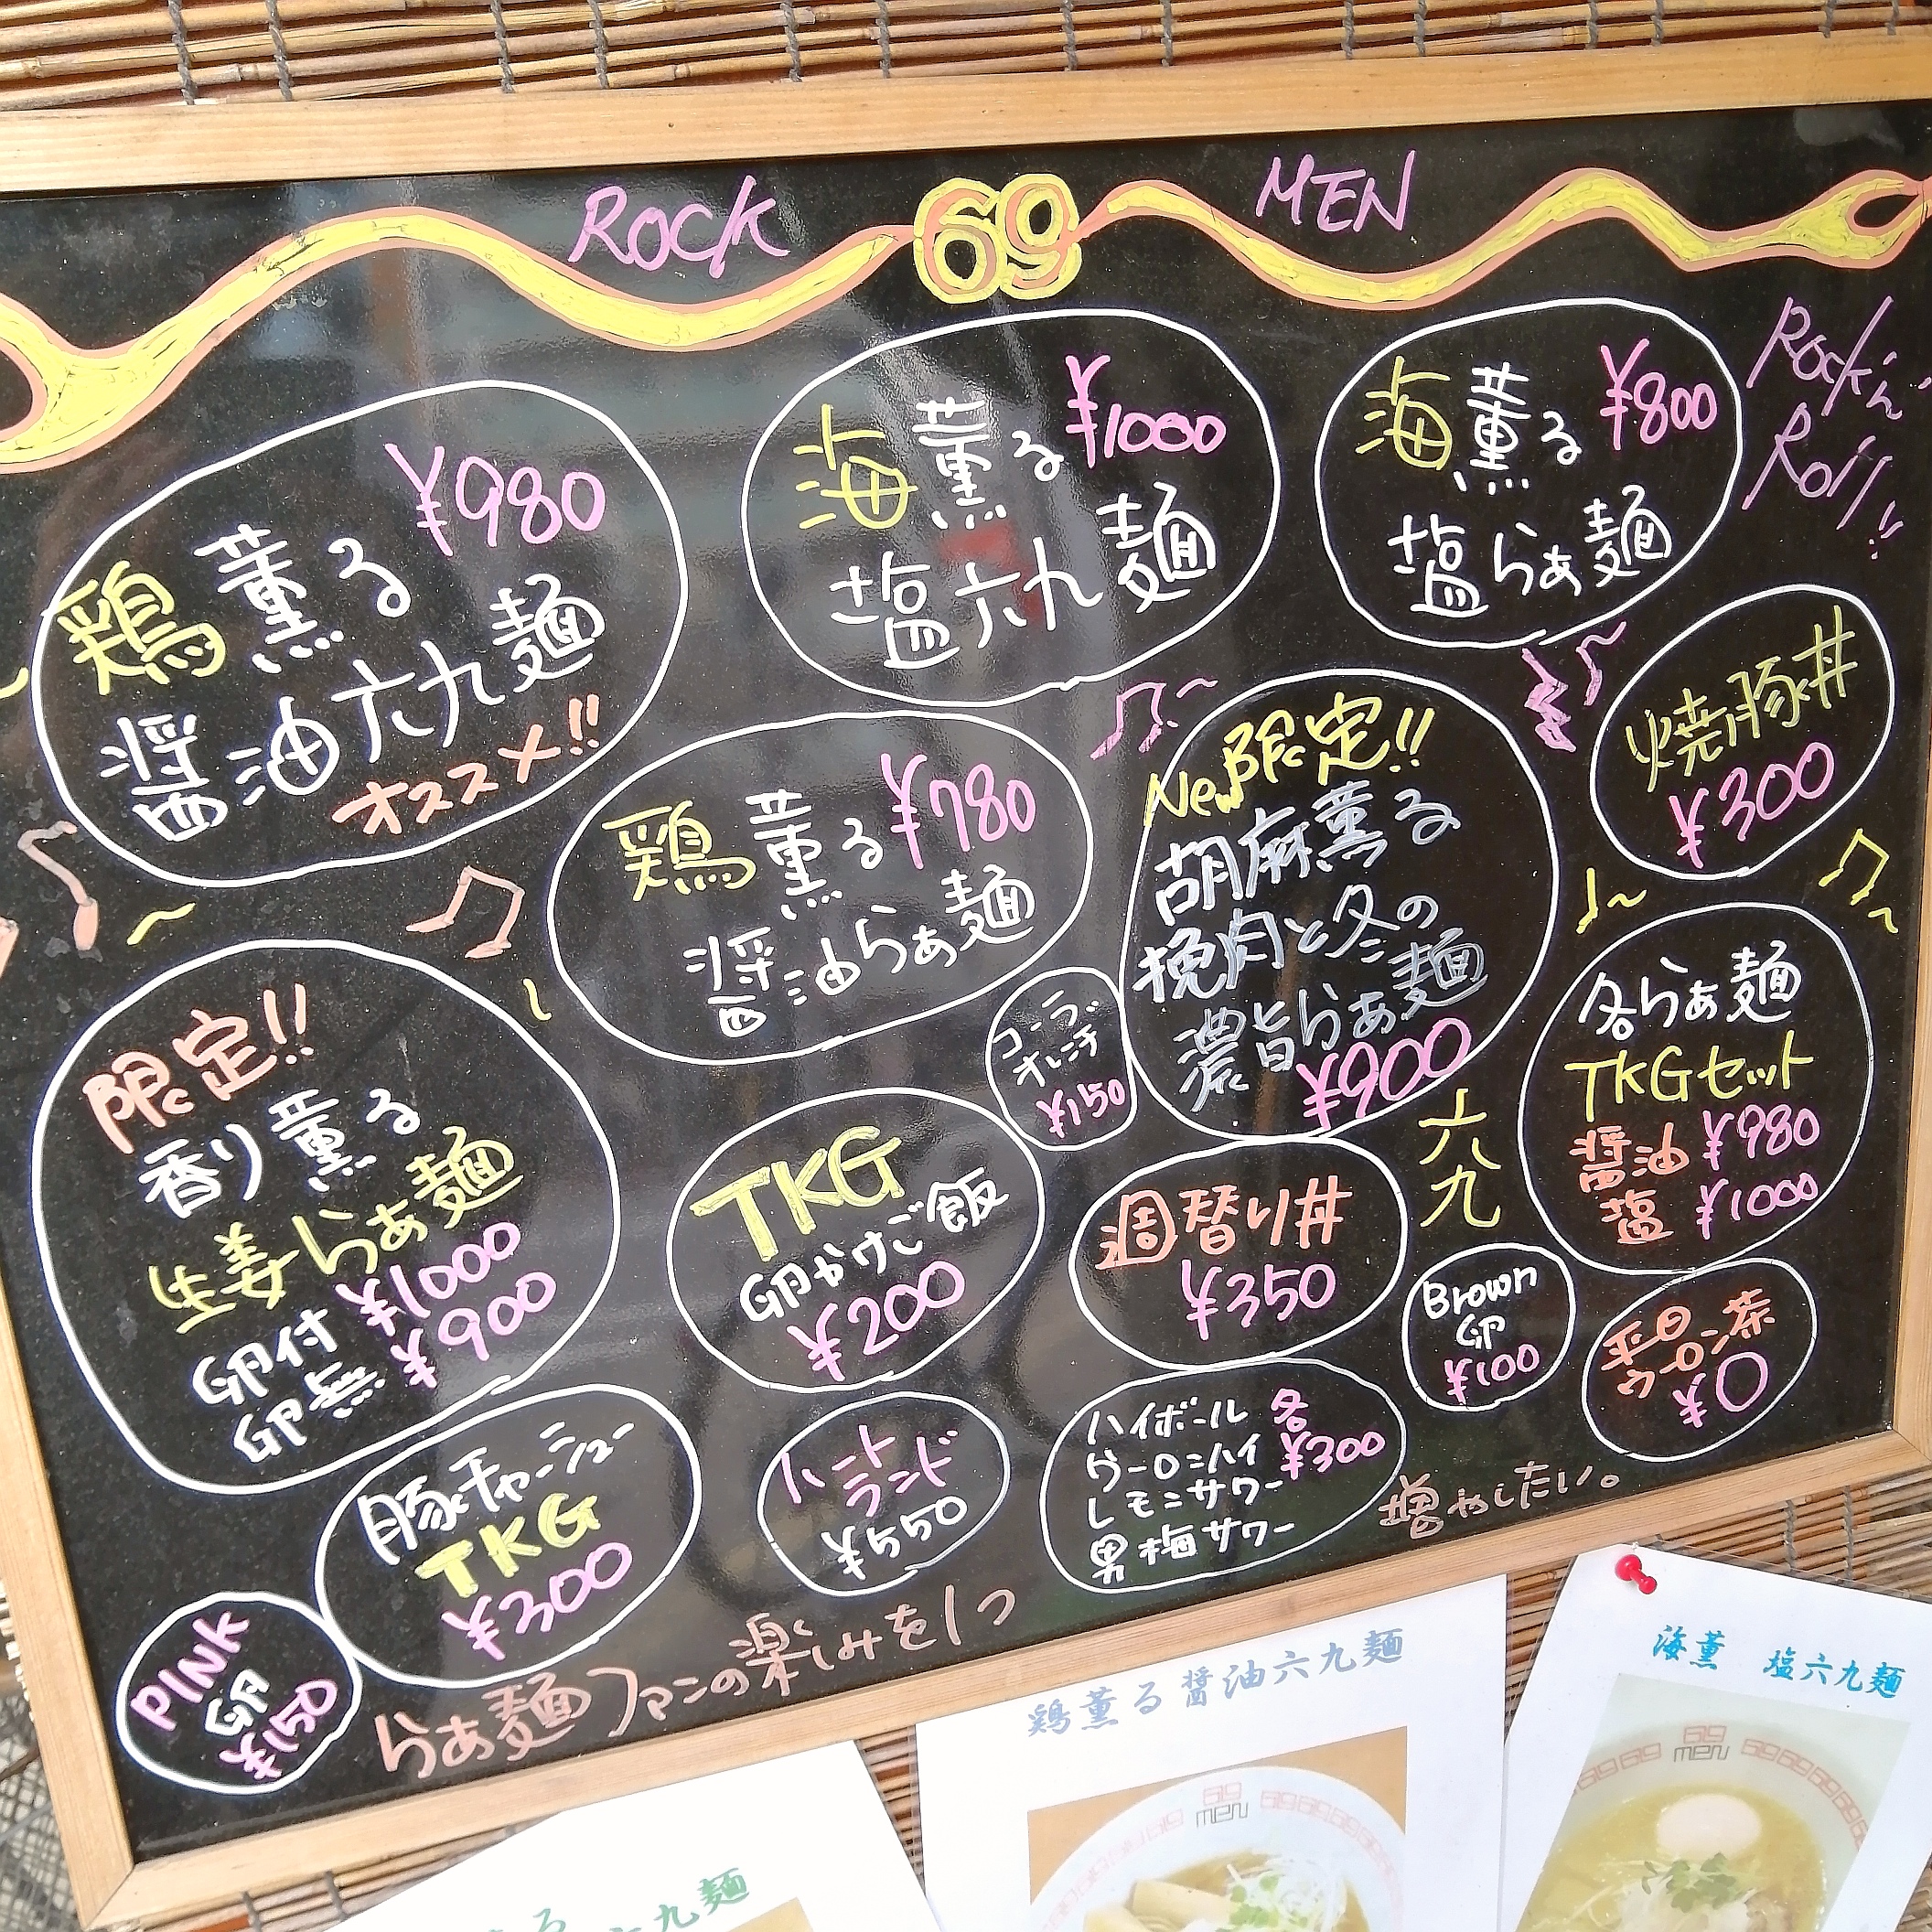 ROCK 69 MEN
Rock'n
Roll!!
¥980
鶏薫る
醤油六九麺
オススメ!!
海薫る ¥1000
塩六九麺
海薫る ¥800
塩らぁ麺
焼豚丼
¥300
鶏薫る ¥780
醤油らぁ麺
New限定!!
胡麻薫る
挽肉と冬の
濃旨らぁ麺
¥900
各らぁ麺
TKGセット
醤油 ¥980
塩 ¥1000
限定!!
香り薫る
生姜らぁ麺
卵付 ¥1000
卵無 ¥900
コーラ、
オレンヂ
¥150
TKG
卵かけご飯
¥200
週替り丼
¥350
六九
Brown
卵
¥100
平日
ウーロン茶
¥0
豚チャーシュー
TKG
¥300
ハート
ランド
¥550
ハイボール 各
ウーロンハイ ¥300
レモンサワー
男梅サワー
PINK
卵
¥150
らぁ麺ファンの楽しみを1つ
増やしたい。
鶏薫る醤油六九麺
69
men
海薫 塩六九麺
69
men
る
六九麺